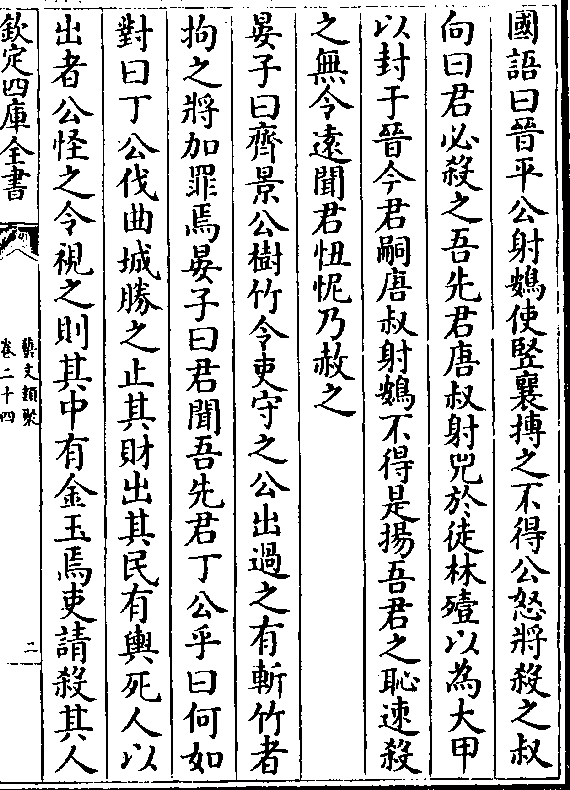 國語曰晉平公射鷃使竪襄搏之不得公怒將殺之叔
向曰君必殺之吾先君唐叔射兕於徒林殪以為大甲
以封于晉今君嗣唐叔射鷃不得是揚吾君之恥速殺
之無令遠聞君忸怩乃赦之
晏子曰齊景公樹竹令吏守之公出過之有斬竹者
拘之將加罪焉晏子曰君聞吾先君丁公乎曰何如
對曰丁公伐曲城勝之止其財出其民有輿死人以
出者公怪之令視之則其中有金玉焉吏請殺其人
欽定四庫全書
藝文類聚
卷二十四
二